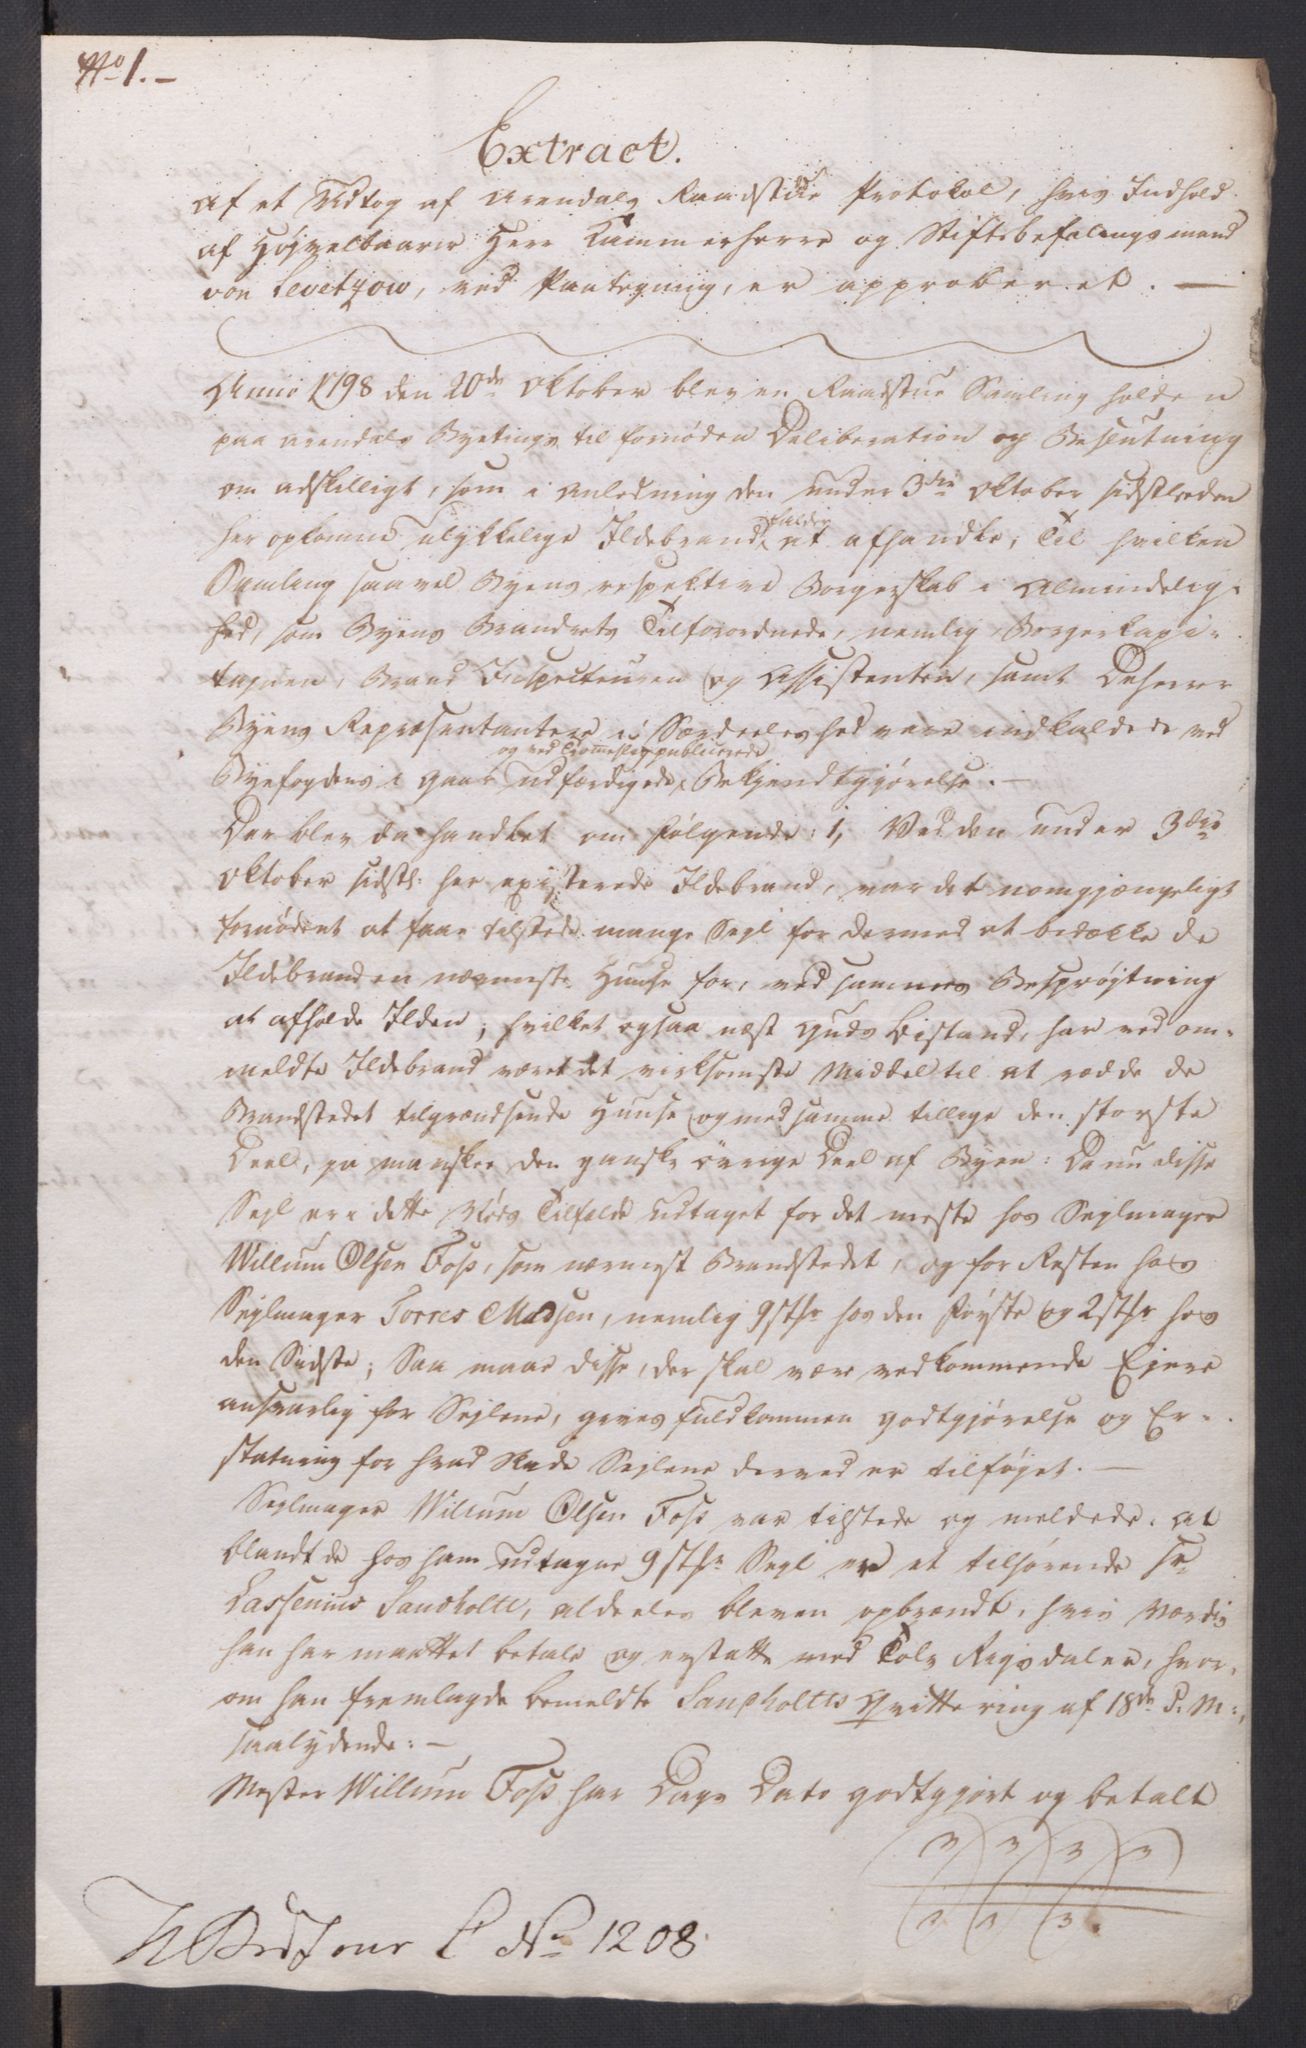 No 1.-
Extract.
Af et Udtog af Arendals Raadstue Protokol, hvis Indhold
af Høyvelbaarne Herr Kammerherre og Stiftsbefalingsmand
von Levetzow, ved Paategning, er approberet. —
Anno 1798 den 20de Oktober blev en Raadstue Samling holden
paa Arendals Byetings til fornøden Deliberation og Beslutning
om adskilligt, som i Anledning den under 3die Oktober sidstleden
her opkomne ulykkelige Ildebrand falder at afhandle; Til hvilken
Samling saavel Byens respektive Borgerskab i Almindelig-
hed, som Byens Brandrets Tilforordnede, nemlig Borgerkapi-
tajnen, Brand Inspecteuren og Assistenten, samt Deherrer
Byens Repræsentantere i Særdeleshed vare indkaldede ved
og ved Trommeslag publicerede
Byefogdens i Gaar udfærdigede Bekjendtgjørelse. —
Der blev da handlet om følgende: 1, Ved den under 3die
Oktober sidstl: her existerede Ildebrand, var det uomgjængeligt
fornødent at faae tilstede mange Sejl for dermed at bedække de
Ildebranden nærmeste Huuse for, ved sammes Besprøjtning
at afholde Ilden; hvilket ogsaa næst Guds Bistand, har ved om-
meldte Ildebrand været det virksomste Middel til at redde de
Brandstedet tilgrændsende Huuse og med samme tillige den største
Deel, ja maaskee den ganske øvrige Deel af Byen: Da nu disse
Sejl er i dette Nøds Tilfælde udtaget for det meste hos Sejlmager
Willum Olsen Foss, som nærmest Brandstedet, og for Resten hos
Sejlmager Torres Madsen, nemlig 9 stkr hos den Første og 2 stkr hos
den Sidste; Saa maae disse, der skal være vedkommende Ejere
ansvarlig for Sejlene, gives fuldkommen Godtgjørelse og Er-
statning for hvad Skade Sejlene derved er tilføjet. —
Sejlmager Willum Olsen Foss var tilstede og meldede, at
blandt de hos ham udtagne 9 stkr Sejl er et tilhørende Sr
Lassenius Sandholte, aldeeles bleven opbrændt, hvis Værdie
han har maattet betale og erstatte med Tolv Rigsdaler, hvor-
om han fremlagde bemeldte Sandholtes Qvittering af 18de d. M:,
saalydende: —
Mester Willum Foss har Dags Dato godtgjort og betalt
No 1208